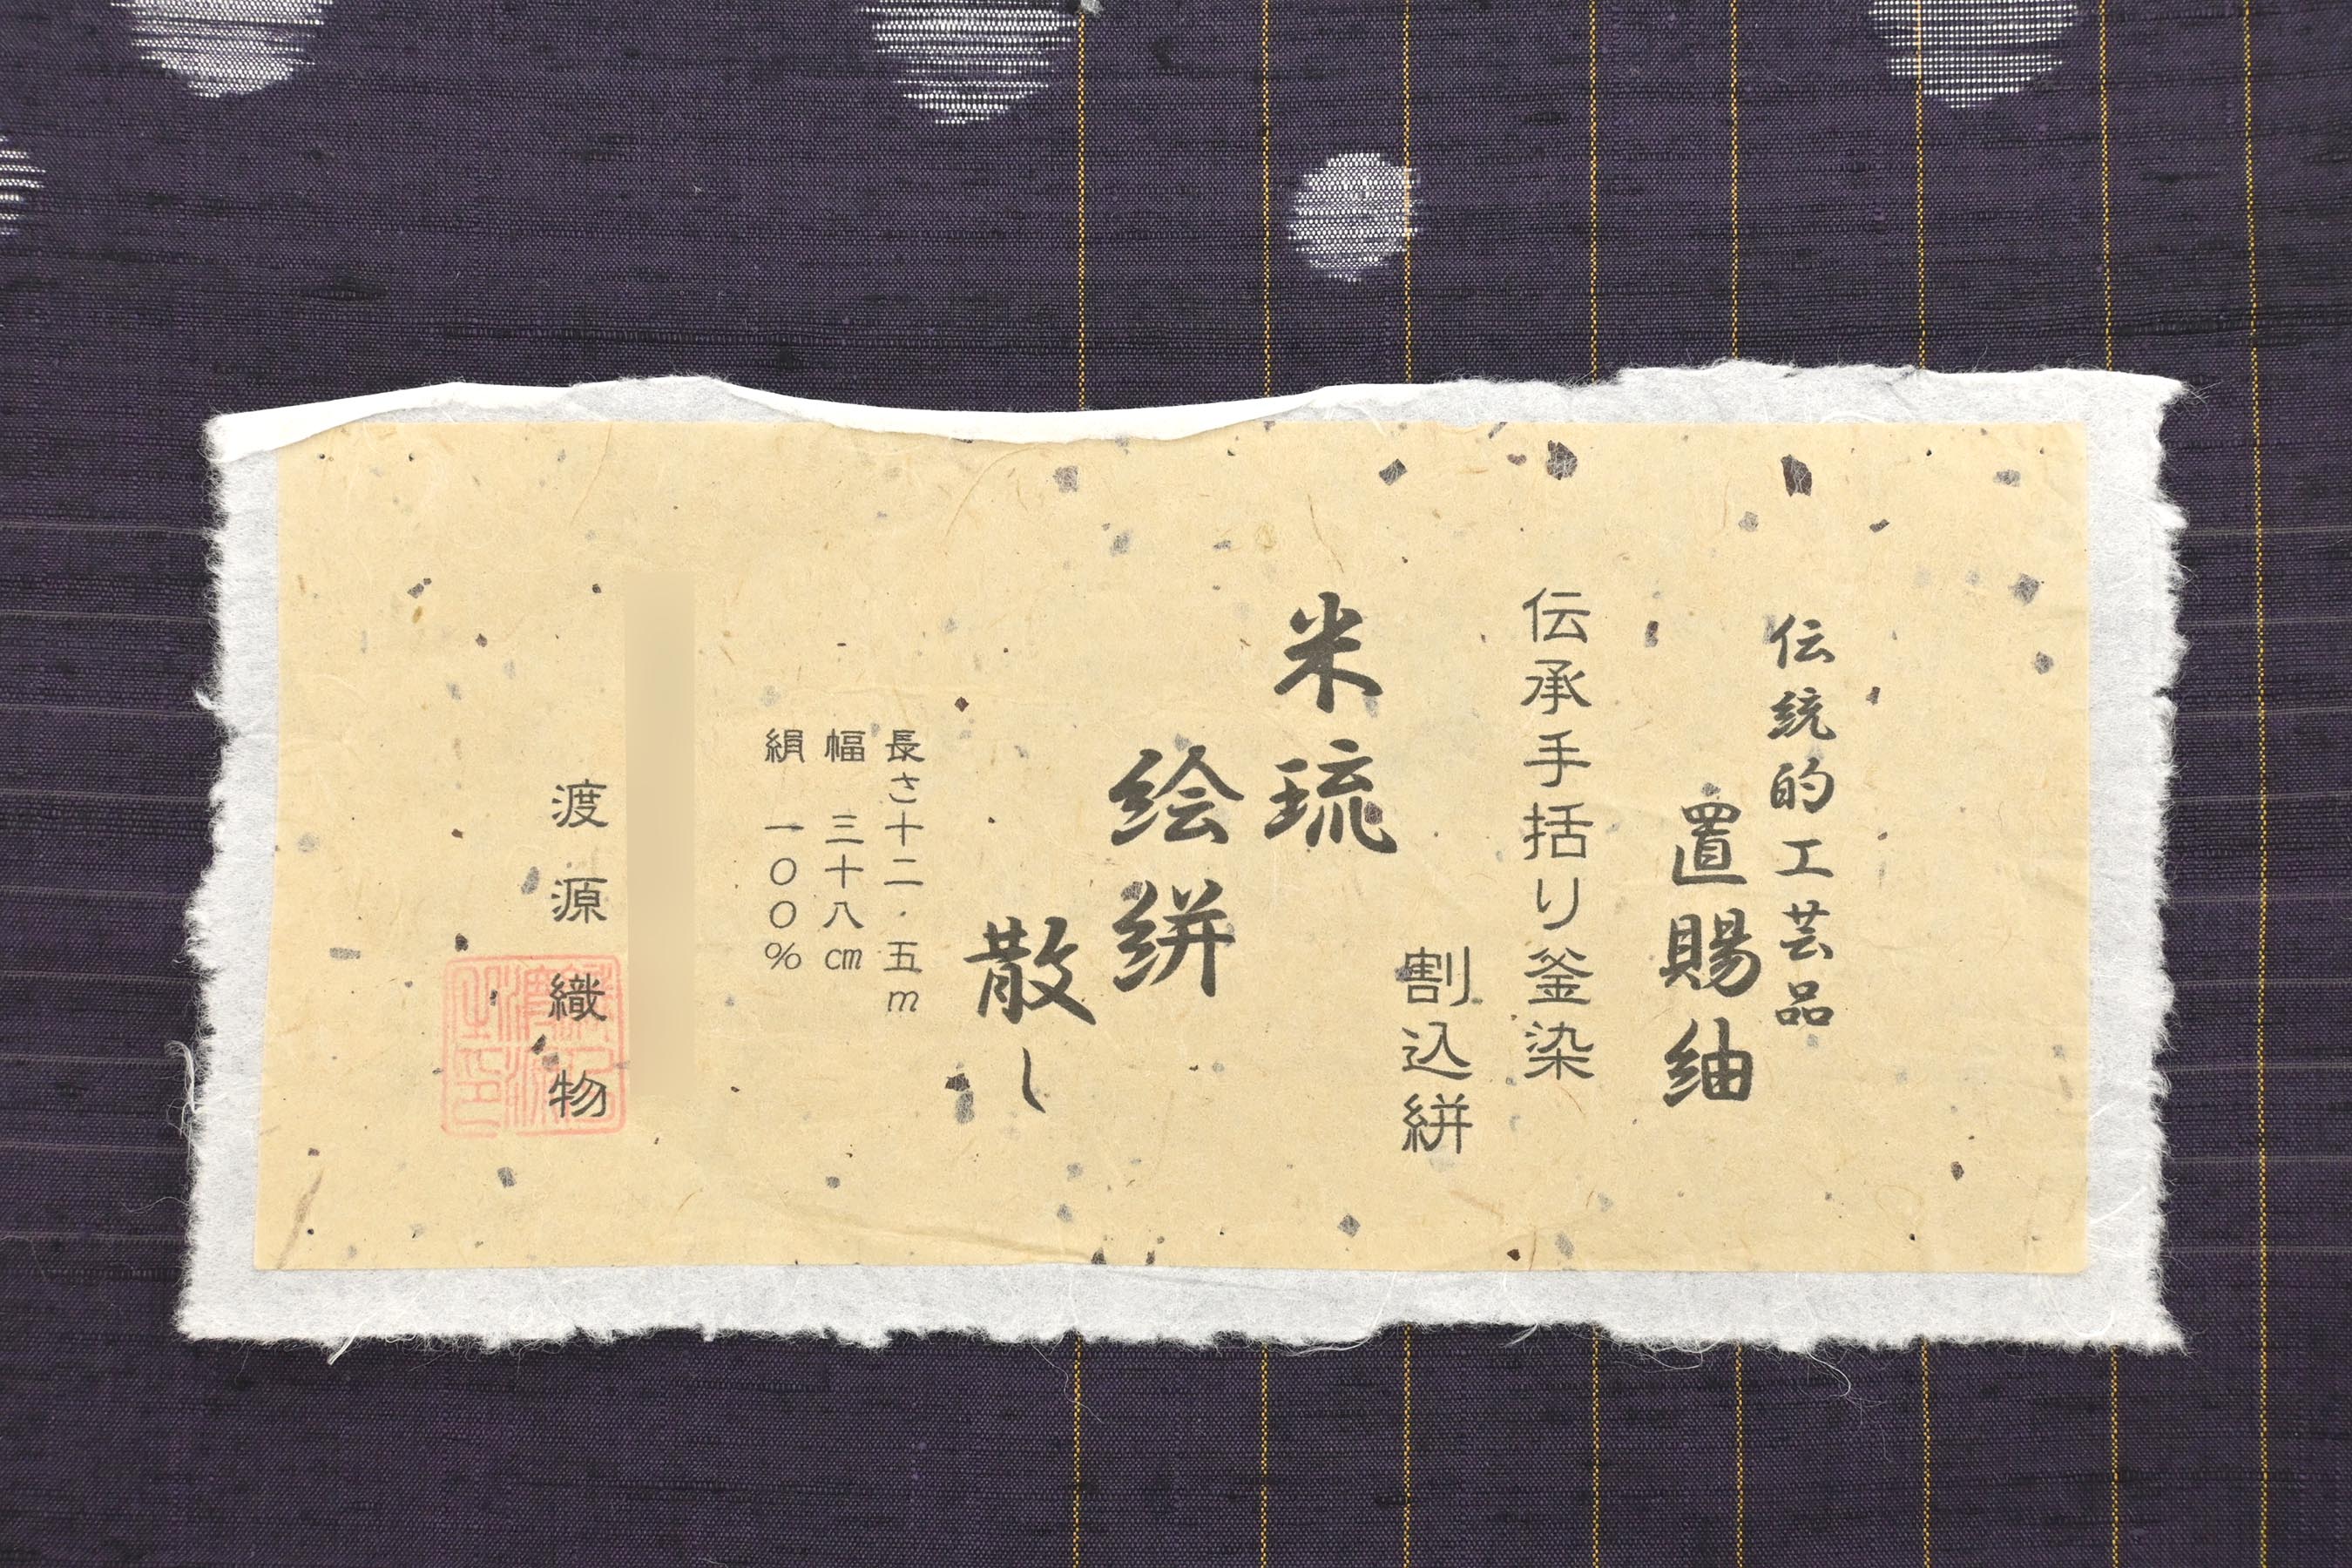 伝統的工芸品
置賜紬
伝承手括り釜染
割込絣
米琉
絵絣
散し
長さ十二・五m
幅 三十八cm
絹 一〇〇%
渡源織物